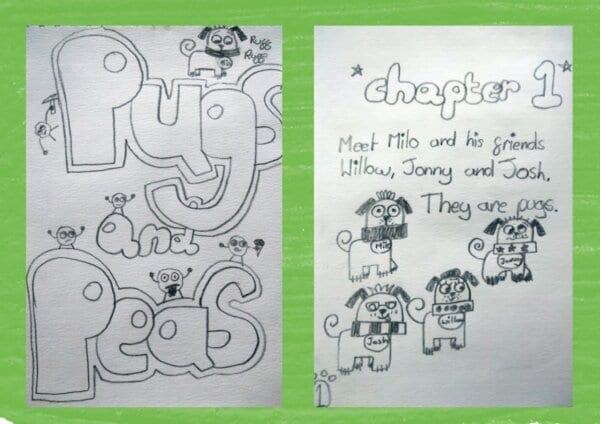 Rugg
Rugg
Pugs
and
Peas
*chapter 1*
Meet Milo and his friends
Willow, Jonny and Josh.
They are pugs.
Milo
Jonny
Willow
Josh
1